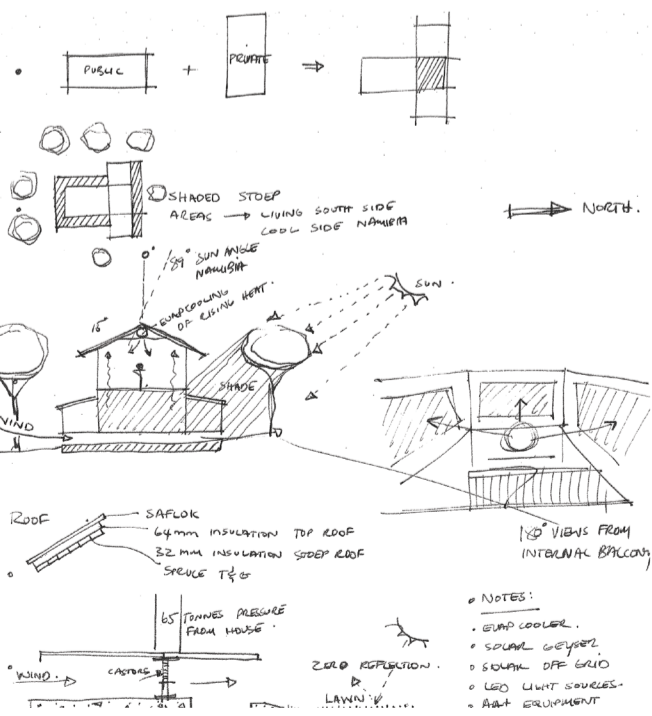 PUBLIC
+
PRIVATE
SHADED STOEP
AREAS → LIVING SOUTH SIDE
COOL SIDE NAMIBIA
NORTH.
0°
89° SUN ANGLE
NAMIBIA
EVAPCOOLING
OF RISING HEAT.
15°
SUN.
SHADE
WIND
180° VIEWS FROM
INTERNAL BALCONY
ROOF
SAFLOK
64mm INSULATION TOP ROOF
32 MM INSULATION STOEP ROOF
SPRUCE T&G
65 TONNES PRESSURE
FROM HOUSE.
WIND.
CASTORS
ZERO REFLECTION.
LAWN
• NOTES:
• EVAP COOLER.
• SOLAR GEYSER
• SOLAR OFF GRID
• LED LIGHT SOURCES.
EQUIPMENT